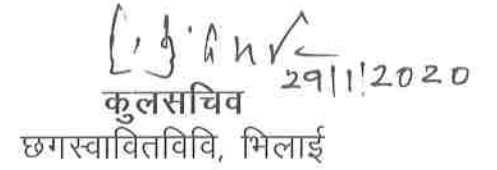 29|1|2020
कुलसचिव
छगस्वावितविवि, भिलाई